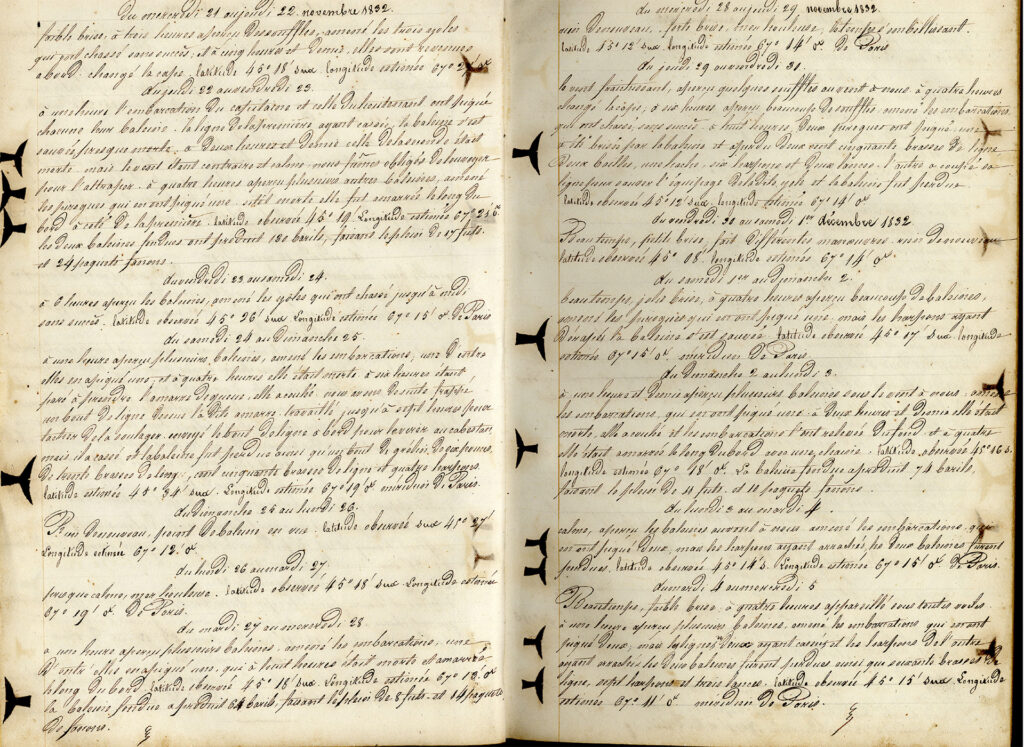 du mercredi 21 au jeudi 22 novembre 1832.
faible brise, à trois heures aperçu des souffles, amené les trois yoles
qui ont chassé sans succès, et à cinq heures et demie, elles sont revenues
a bord. changé la cape. latitude 45° 18' sud longitude estimée 67° 2
du jeudi 22 au vendredi 23.
à une heure l'embarcation du capitaine et celle du lieutenant ont piqué
chacune leur baleine. la ligne de la première, ayant cassée, la baleine s'est
sauvée presque morte. à deux heures et demie celle de la seconde était
morte. mais le vent étant contraire et calme, nous fûmes obligés de louvoyer
pour l'attraper. à quatre heures aperçu plusieurs autres baleines, amené
les pirogues qui en ont piqué une. sitôt morte elle fut amarrée le long du
bord à coté de la première. latitude observée 45° 19. Longitude estimée 67° 23' 6°.
les deux baleines fondues ont produit 120 barils, faisant le plein de 17 futs.
et 24 paquets fanons.
du vendredi 23 au samedi 24.
à 6 heures aperçu les baleines, amené les yoles qui ont chassé jusqu'à midi
sans succès. latitude observée 45° 26' sud Longitude estimée 67° 15' o? de Paris
du samedi 24 au dimanche 25.
à une heure aperçu plusieurs baleines, amené les embarcations, une d'entre
elles en a piqué une, et à quatre heures elle était morte. à six heures étant
paré à prendre l'amarre de queue, elle a coulé. nous avons de suite frappé
un bout de ligne dessus la dite amarre, travaillé jusqu'à sept heures pour
tacher de la soulager. envoyé le bout de ligne à bord pour le virer au cabestan,
mais il a cassé et la baleine fut perdue ainsi qu'un bout de grelin de six pouces,
de trente brasses de long, cent cinquante brasses de ligne et quatre harpons.
latitude estimée 45° 34' sud. Longitude estimée 67° 19' o? méridien de Paris.
du dimanche 25 au lundi 26.
Rien de nouveau, point de baleine en vue. latitude observée sud 45° 27'
Longitude estimée 67° 12' o?
du lundi 26 au mardi 27.
presque calme, mer houleuse. latitude observée 45° 18' sud. Longitude estimée
67° 19' o? de Paris.
du mardi 27 au mercredi 28.
a une heure aperçu plusieurs baleines, amené les embarcations, une
d'entre elles en a piqué une, qui à huit heures était morte et amarrée
le long du bord. latitude observée 45° 18' sud. Longitude estimée 67° 13' o?
la baleine fondue a produit 64 barils, faisant le plein de 8 futs, et 14 paquets
de fanons.
du mercredi 28 au jeudi 29 novembre 1832.
rien de nouveau, forte brise, mer houleuse, le temps embellissant.
latitude 45° 12' sud, longitude estimée 67° 14' o? de Paris
du jeudi 29 au vendredi 31.
le vent fraichissant, aperçu quelques souffles au vent à nous, à quatre heures
changé la cape, à six heures aperçu beaucoup de souffles, amené les embarcations,
qui ont chassé sans succès. à huit heures deux pirogues ont piqué, une
a été brisée par la baleine et a perdu deux cent cinquante brasses de ligne
deux bailles, une hache, six harpons et deux lances. l'autre a coupé sa
ligne pour sauver l'équipage de la dite yole et la baleine fut perdue
latitude observée 45° 12' sud, longitude estimée 67° 14' o?
du vendredi 31 au samedi 1er décembre 1832
Beau temps, petite brise, fait différentes manœuvres. rien de nouveau
latitude observée 45° 08. longitude estimée 67° 14' o?
du samedi 1er au dimanche 2.
beau temps, jolie brise, à quatre heures aperçu beaucoup de baleines,
amené les pirogues qui en ont piqué une, mais les harpons ayant
dérapés la baleine s'est sauvée. latitude observée 45° 17' sud longitude
estimée 67° 15' o?, méridien de Paris.
du dimanche 2 au lundi 3.
à une heure et demie aperçu plusieurs baleines sous le vent à nous. amené
les embarcations, qui en ont piqué une. à deux heures et demie elle était
morte, elle a coulé et les embarcations l'ont relevée du fond, et à quatre
elle était amarrée le long du bord avec une chaine. latitude observée 45° 16 s.
longitude estimée 67° 18' o?. La baleine fondue a produit 74 barils,
faisant le plein de 11 futs, et 10 paquets fanons.
du lundi 3 au mardi 4.
calme, aperçu les baleines au vent à nous, amené les embarcations qui
en ont piqué deux, mais les harpons ayant arrachés, les deux baleines furent
perdues. latitude observée 45° 14' s. Longitude estimée 67° 15' o? de Paris.
du mardi 4 au mercredi 5
Beau temps, faible brise, à quatre heures appareillé sous toutes voiles
à une heure aperçu plusieurs baleines, amené les embarcations qui en ont
piqué deux, mais les lignes d'eux ayant cassés et les harpons de l'autre
ayant arrachés les deux baleines furent perdues ainsi que soixante brasses de
ligne, sept harpons et trois lances. latitude observée 45° 15' sud, Longitude
estimée 67° 11' o? méridien de Paris.